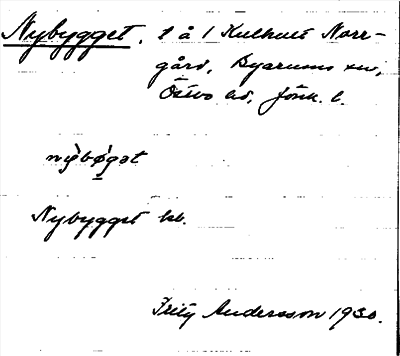 Nybygget, t å 1 Kulhult Norr-
gård, Byarums sn,
Östbo hd, Jönk. l.
nỳbøg̀ət
Nybygget kb.
Fritz Andersson 1930.